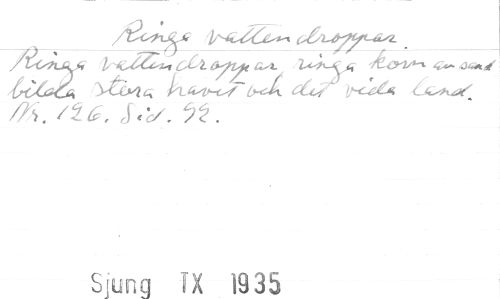 Ringa vattendroppar.
Ringa vattendroppar, ringa korn av sand
bilda stora havet och det vida land.
Nr. 126. Sid. 92.
Sjung TX 1935